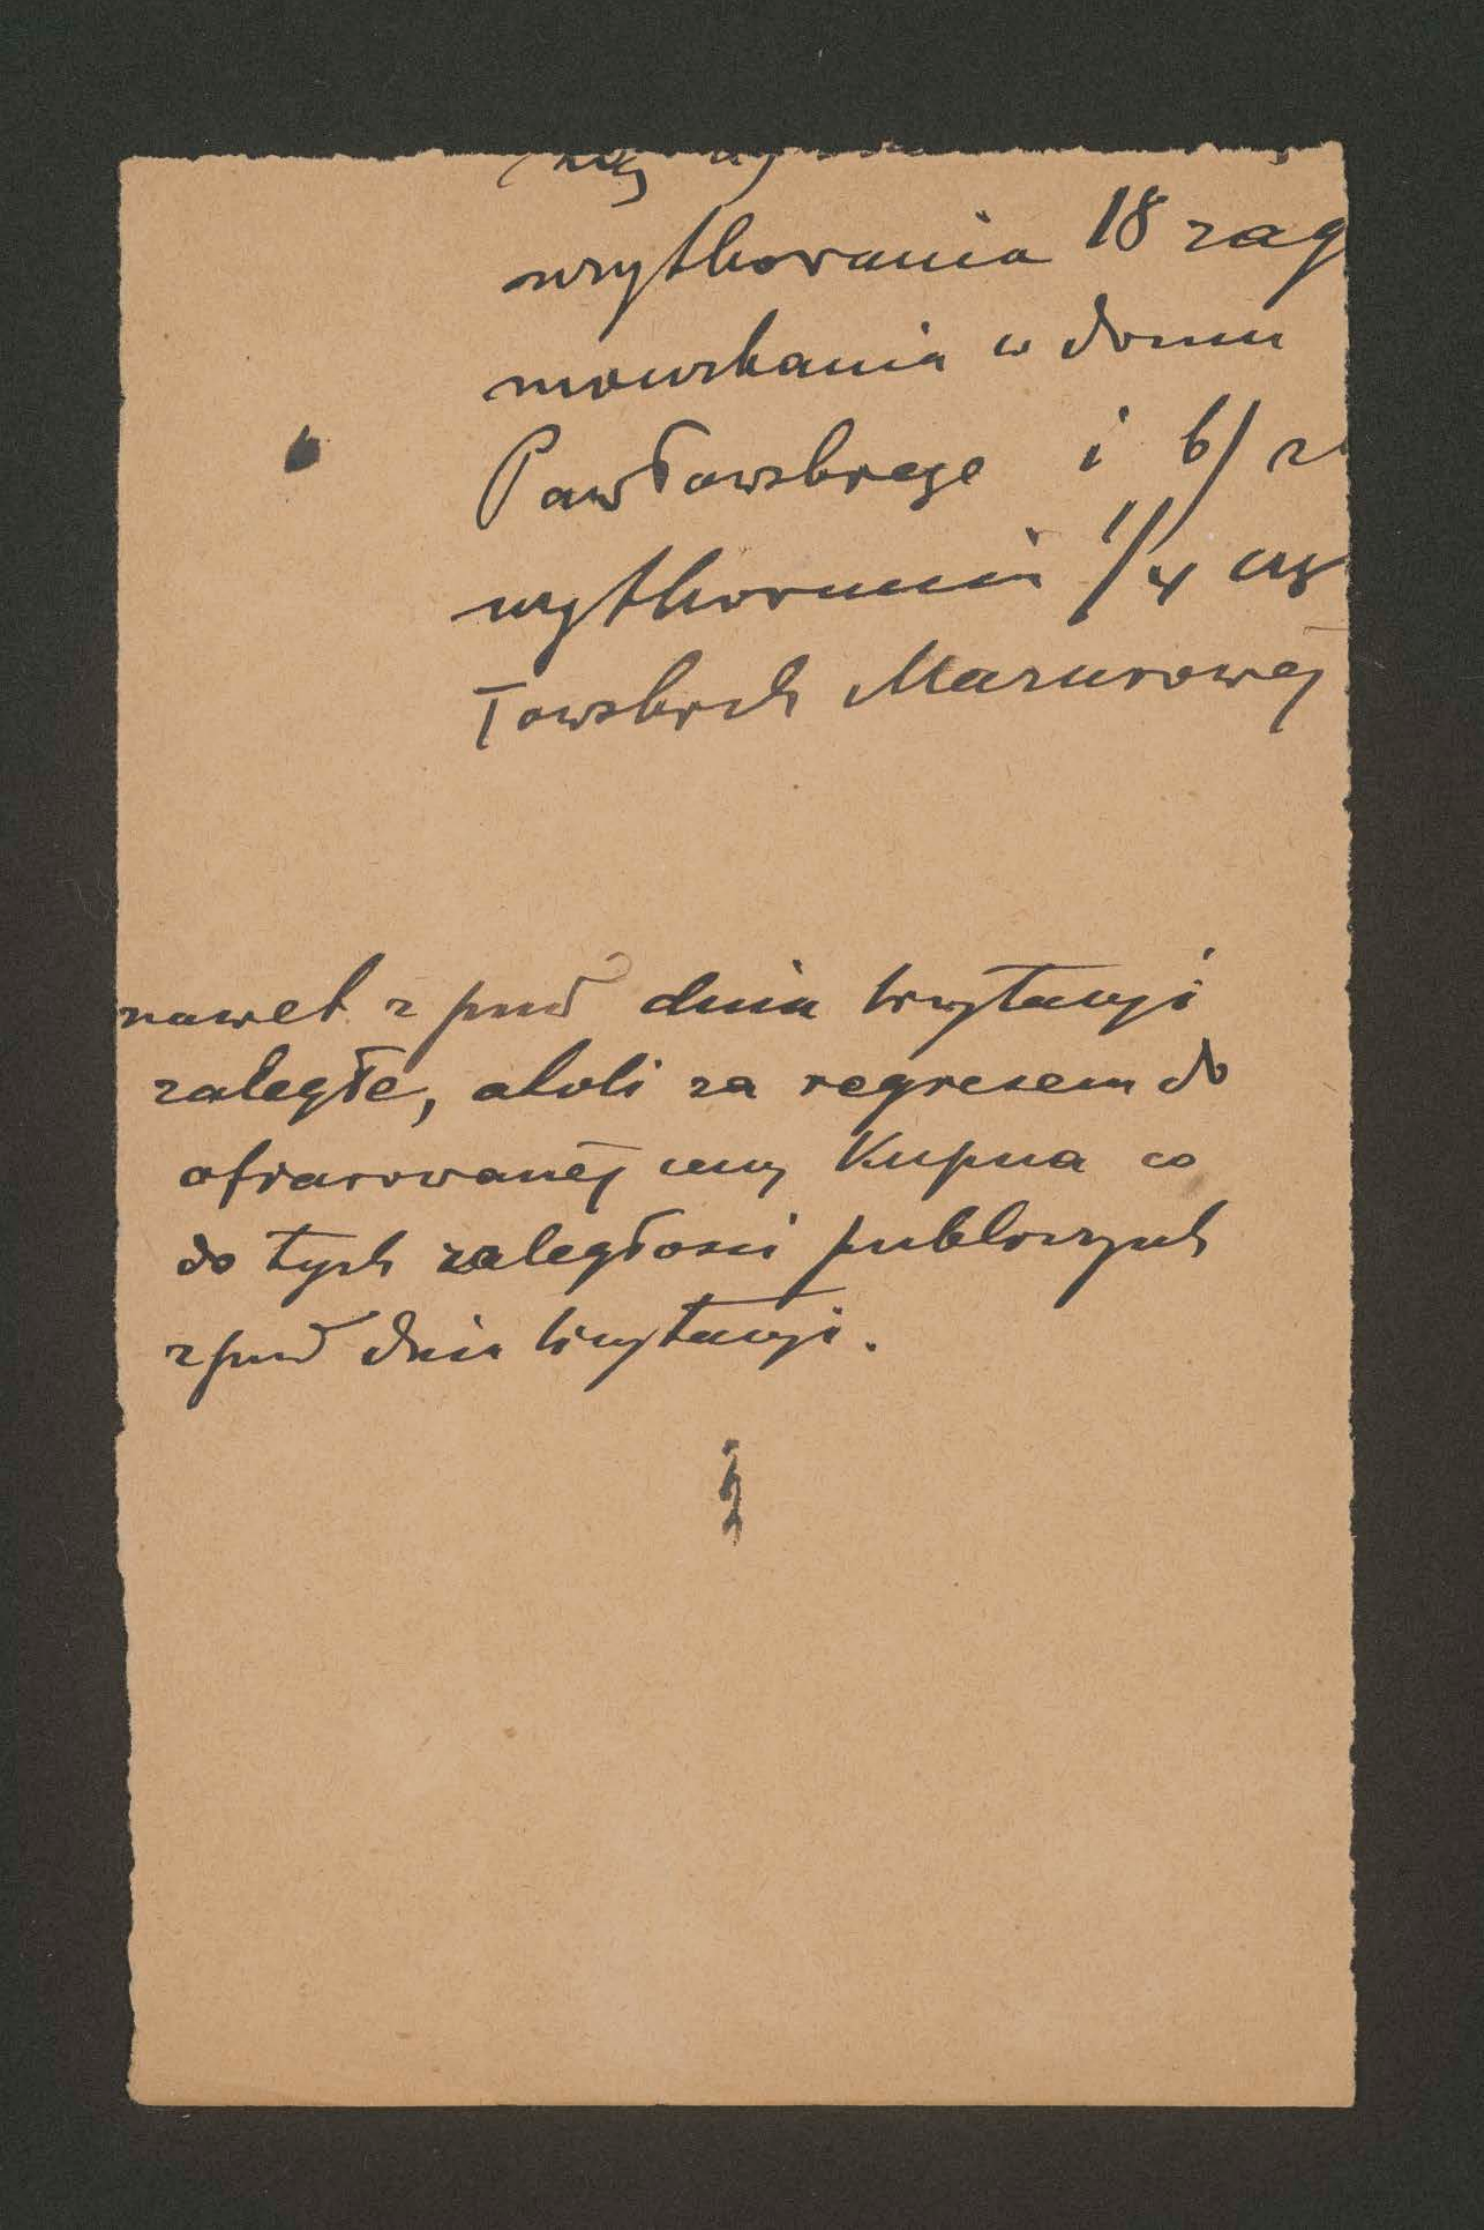 użytkowania 18 zag
mieszkania w domu
Pawłowskiego i b/ z
użytkowania 1/4 czę
łowskich Mazurowej
nawet z przed dnia licytacyi
zaległe, atoli za regresem do
ofiarowanej ceny Kupna co
do tych zaległości publicznych
z przed dnia licytacyi.